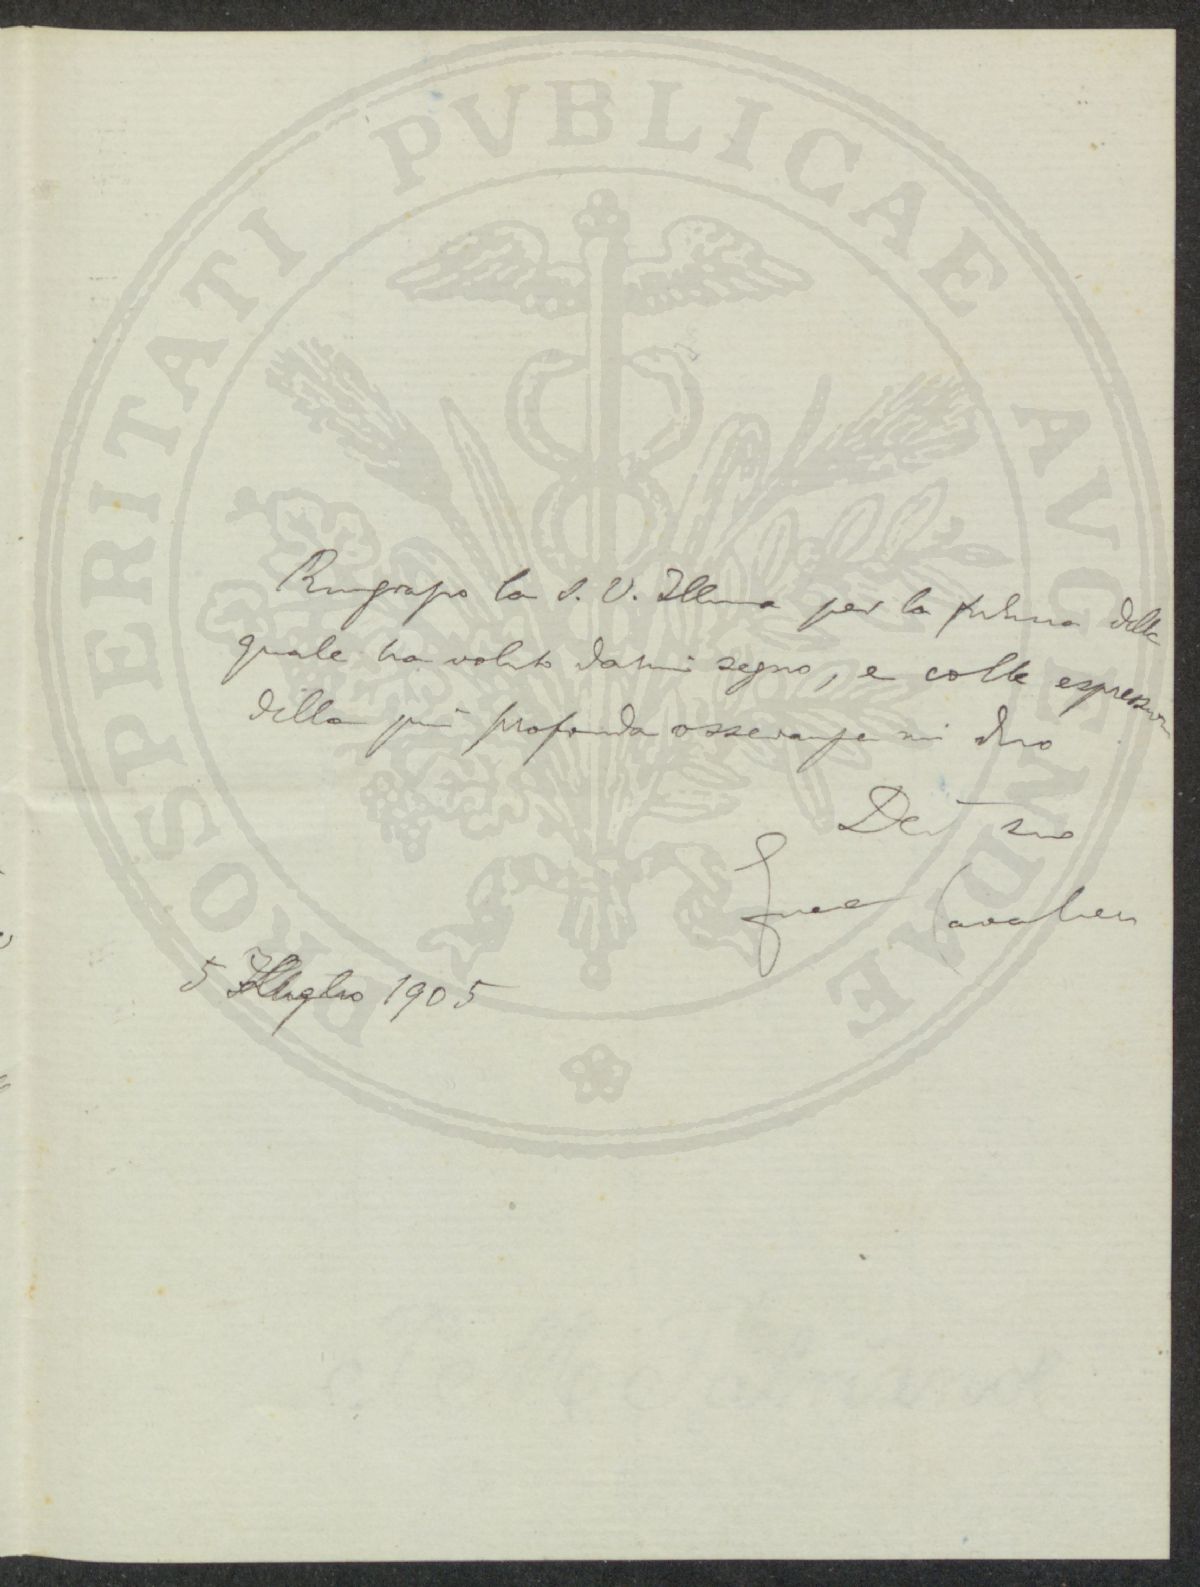 PROSPERITATI PVBLICAE AVGENDAE
Ringrazio la S. V. Illma per la fiducia della
quale ha voluto darmi segno, e colle espressioni
della più profonda osservanza mi dico
Dev suo
Cavalieri
5 Luglio 1905